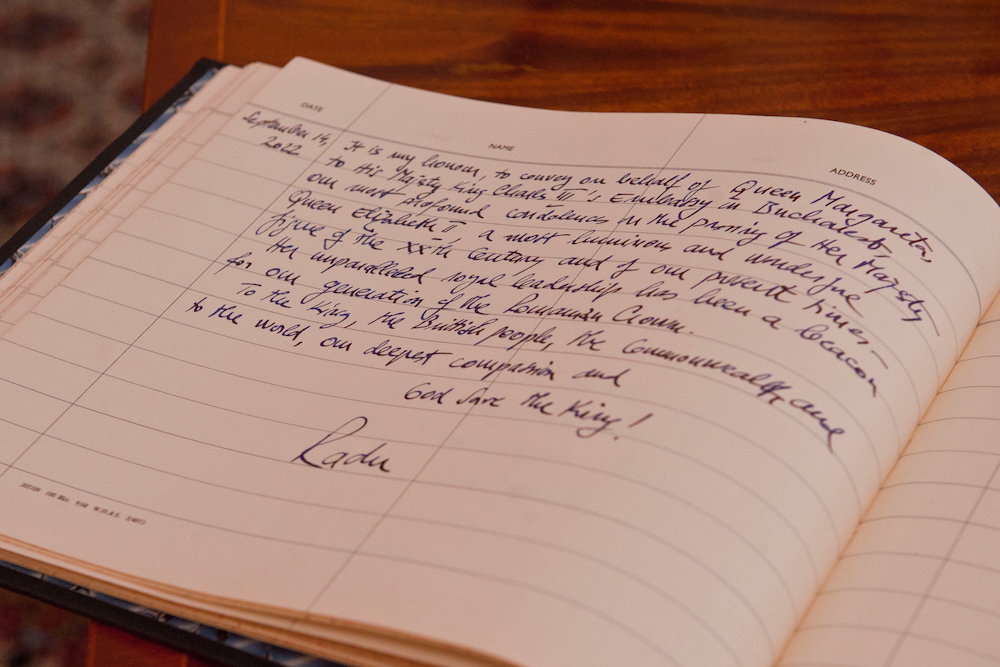 DATE NAME ADDRESS
September 14,
2022
It is my honour, to convey on behalf of Queen Margareta,
to His Majesty King Charles III's Embassy in Bucharest,
our most profound condolences in the passing of Her Majesty
Queen Elizabeth II a most luminous and
figure of the XXth Century and of our present times,–
Her unparalleled royal leadership has been a beacon
for our generation of the Romanian Crown.
To the King, the British people, the Commonwealth, and
to the world, our deepest compassion and
God Save the King!
Radu